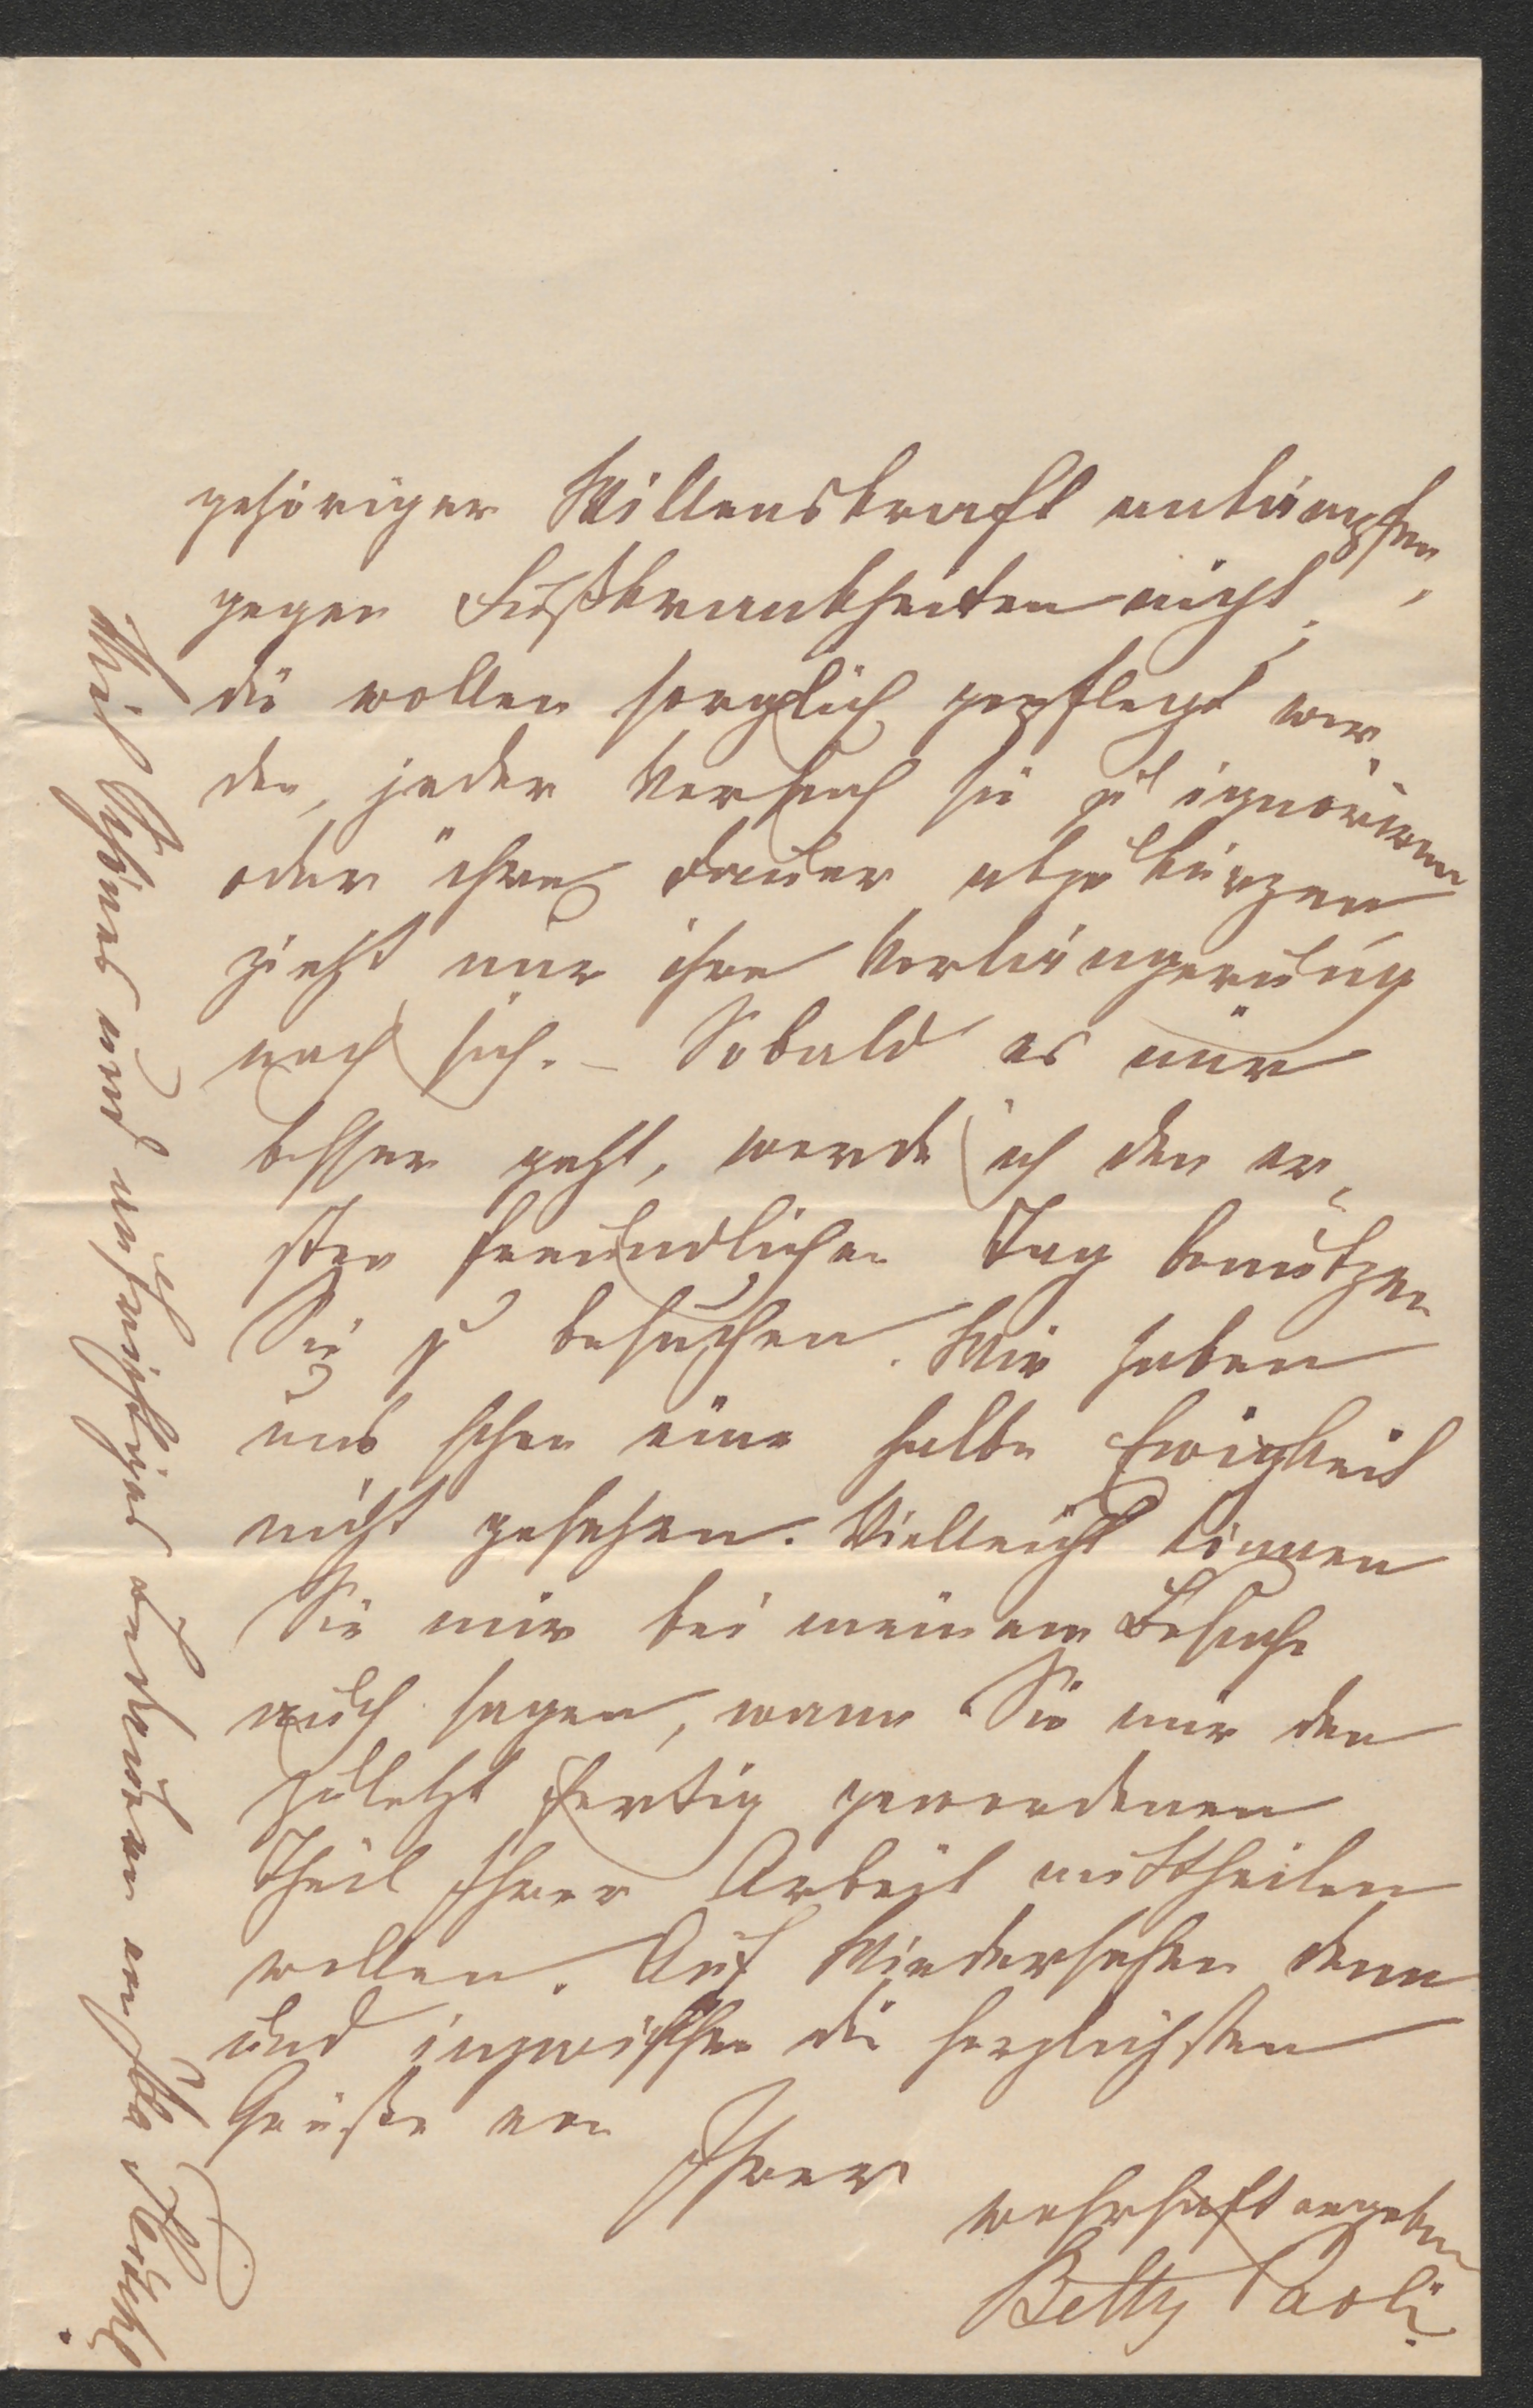 gehöriger Willenskraft ankämpfen,
gegen Fußkrankheiten nicht;
die wollen sorglich gepflegt wer-
den, jeder Versuch sie zu ignoriren
oder ihre Dauer abzukürzen
zieht nur ihre Verlängerung
nach sich. – Sobald es mir
besser geht, werde ich den er-
sten freundlichen Tag benutzen
Sie zu besuchen. Wir haben
uns schon eine halbe Ewigkeit
nicht gesehen. Vielleicht können
Sie mir bei meinem Besuche
auch sagen, wann Sie mir den
zuletzt fertig gewordenen
Theil Ihrer Arbeit mittheilen
wollen. Auf Wiedersehen denn
und inzwischen die herzlichsten
Grüße von
Ihrer
wahrhaft ergebenen
Betty Paoli.
Viel Schönes und aufrichtiges Bedauern von